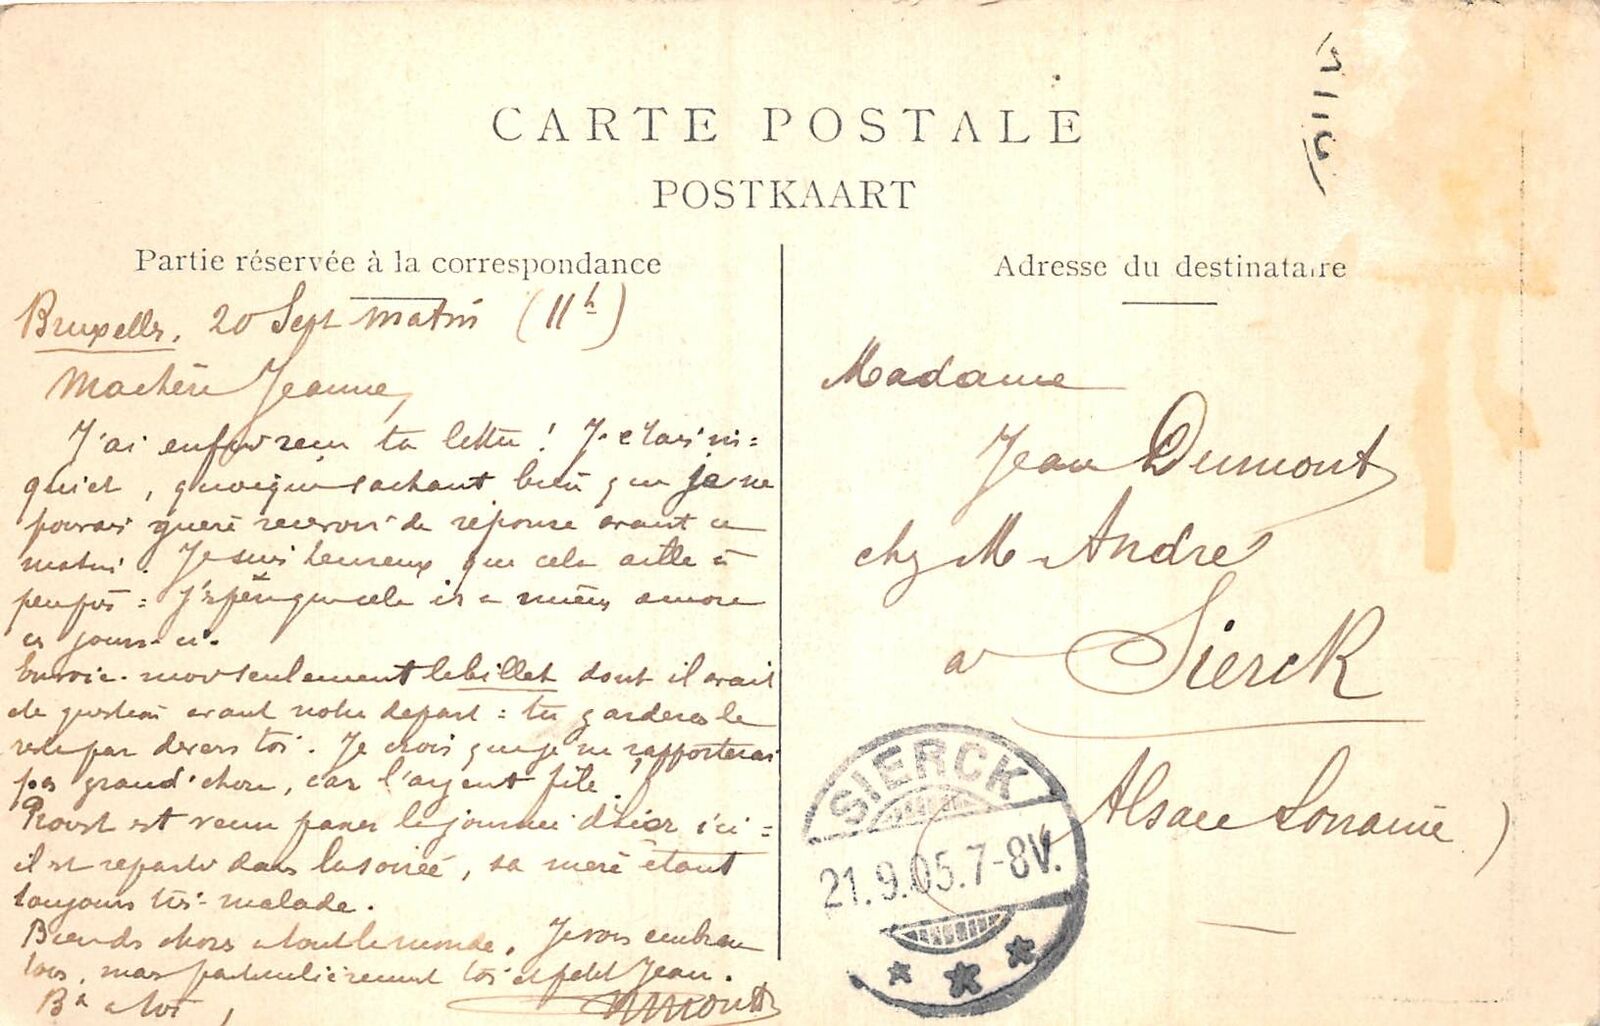 CARTE POSTALE
POSTKAART
Partie réservée à la correspondance
Bruxelles, 20 Sept matin (11h)
Ma chère Jeanne,
J'ai enfin reçu ta lettre ! J'étais in=
quiet, quoique sachant bien que je ne
pouvais guère recevoir de réponse avant ce
matin. Je suis heureux que cela aille à
peu près = j'espère que cela ira mieux encore
ces jours-ci.
Envoie-moi seulement le billet dont il avait
été question avant notre départ = tu garderas le
reste par devers toi. Je crois que je ne rapporterai
pas grand'chose, car l'argent file !
Provost est venu passer la journée d'hier ici =
il est reparti dans la soirée, sa mère étant
toujours très-malade.
Bien ds choses à tout le monde. Je vous embrasse
tous, mais particulièrement toi et petit Jean.
Bx à toi,
Dumont
Adresse du destinataire
Madame
Jean Dumont
chez M André
a Sierck
(Alsace Lorraine)
SIERCK
21.9.05.7-8V.